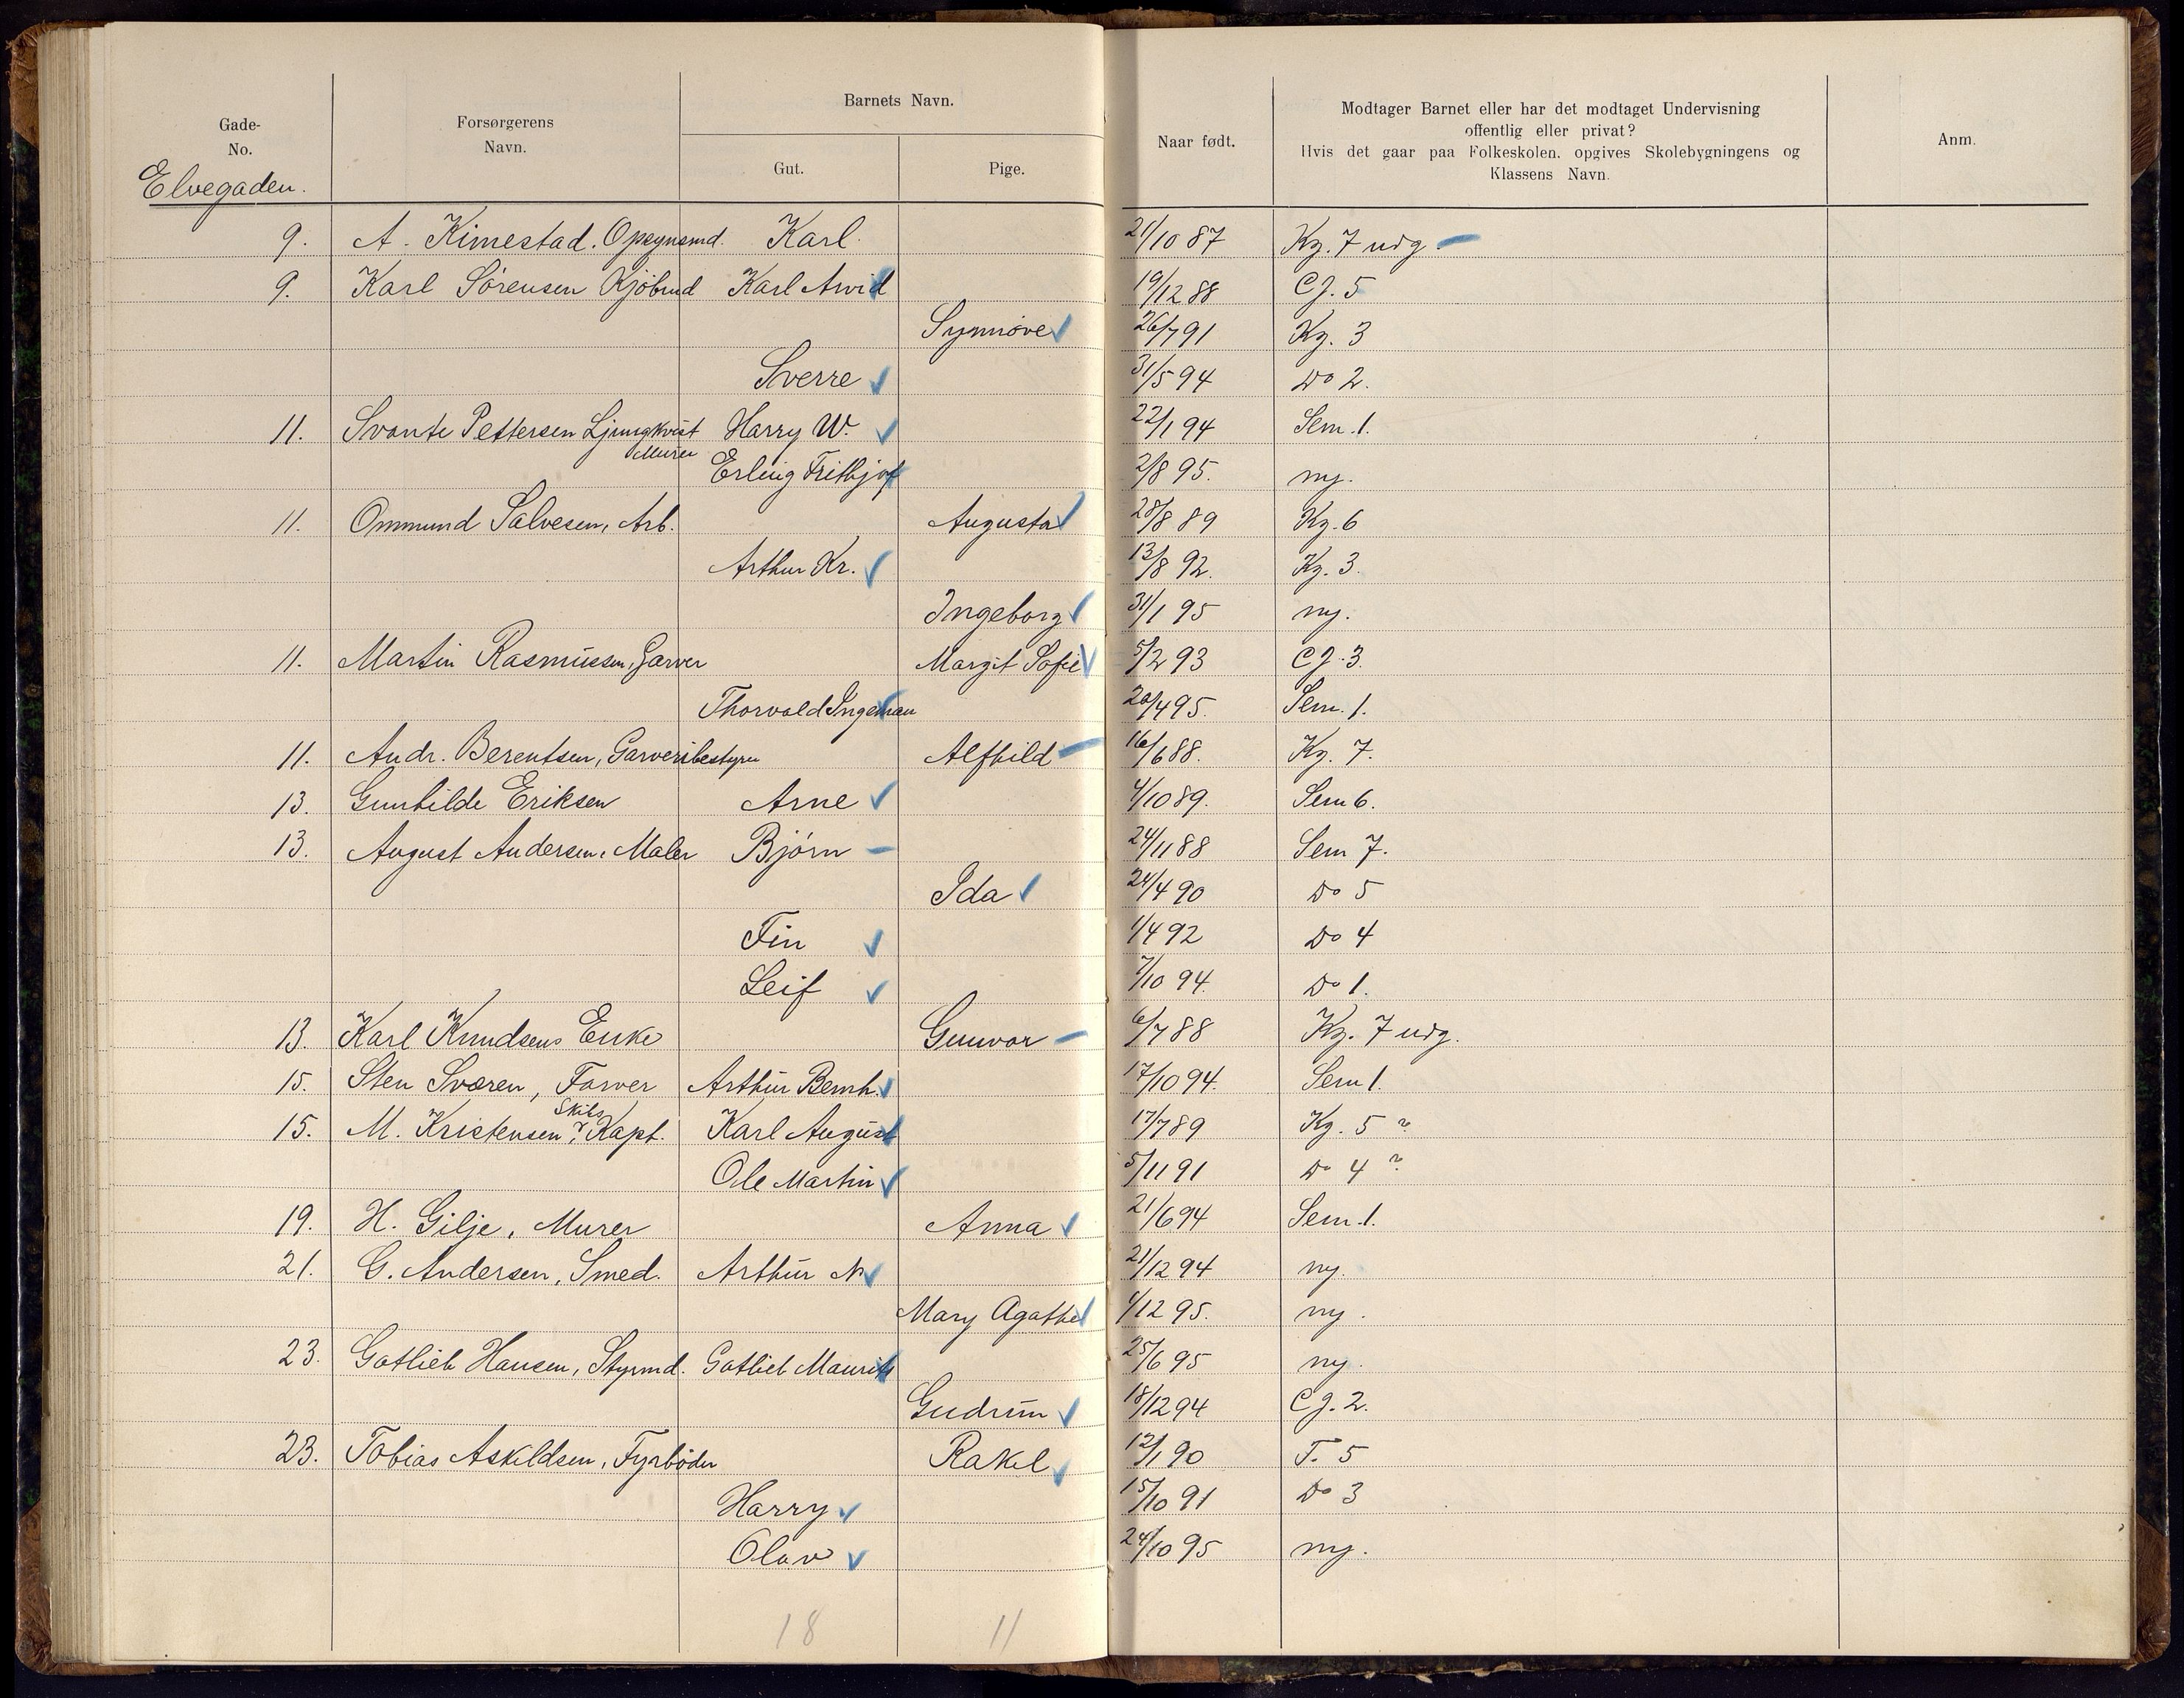 Gade-
No.
Forsørgerens
Navn.
Barnets Navn.
Gut.
Pige.
Naar født.
Modtager Barnet eller har det modtaget Undervisning
offentlig eller privat?
Hvis det gaar paa Folkeskolen, opgives Skolebygningens og
Klassens Navn.
Anm.
Elvegaden.
9. A. Kimestad. Opsynsmd. Karl. 21/10 87 Kg. 7 udg.
9. Karl Sörensen Kjöbmd Karl Arvid 19/12 88 CJ. 5
Synnöve 26/7 91 Kg. 3
Sverre 31/5 94 Do 2.
11. Svante Pettersen Ljungkvist Murer Harry W. 22/1 94 Sem. 1.
Erling Frithjof 2/8 95. ny.
11. Ommund Salvesen, Arb. Augusta 28/8 89 Kg. 6
Arthur Kr. 13/8 92. Kg. 3.
Ingeborg 31/1 95 ny.
11. Martin Rasmussen, Garver Margit Sofie 5/2 93 CJ. 3.
Thorvald Ingeman 20/4 95. Sem. 1.
11. Andr. Berentsen, Garveribestyrer Alfhild 16/6 88. Kg. 7.
13. Gunhilde Eriksen Arne 4/10 89. Sem 6.
13. August Andersen, Maler Björn 24/11 88 Sem 7.
Ida 24/4 90 Do 5
Fin 1/4 92 Do 4
Leif 7/10 94. Do 1.
13. Karl Knudsens Enke Gunvor 6/7 88 Kg. 7 udg.
15. Sten Sværen, Farver Arthur Bernh. 17/10 94. Sem 1.
15. M. Kristensen, Skibs? Kapt. Karl August 17/7 89 Kg. 5 ?
Ole Martin 5/11 91 Do 4 ?
19. H. Gilje, Murer Anna 21/6 94 Sem. 1.
21. G. Andersen, Smed. Arthur N. 21/12 94 ny.
Mary Agathe 1/12 95. ny.
23. Gotlieb Hansen, Styrmd. Gotlieb Maurits 25/6 95 ny.
Gudrun 18/12 94 CJ. 2.
23. Tobias Askildsen, Fyrböder Rakel 12/1 90 T. 5
Harry 15/10 91 Do 3
Olav 24/10 95 ny.
18 11